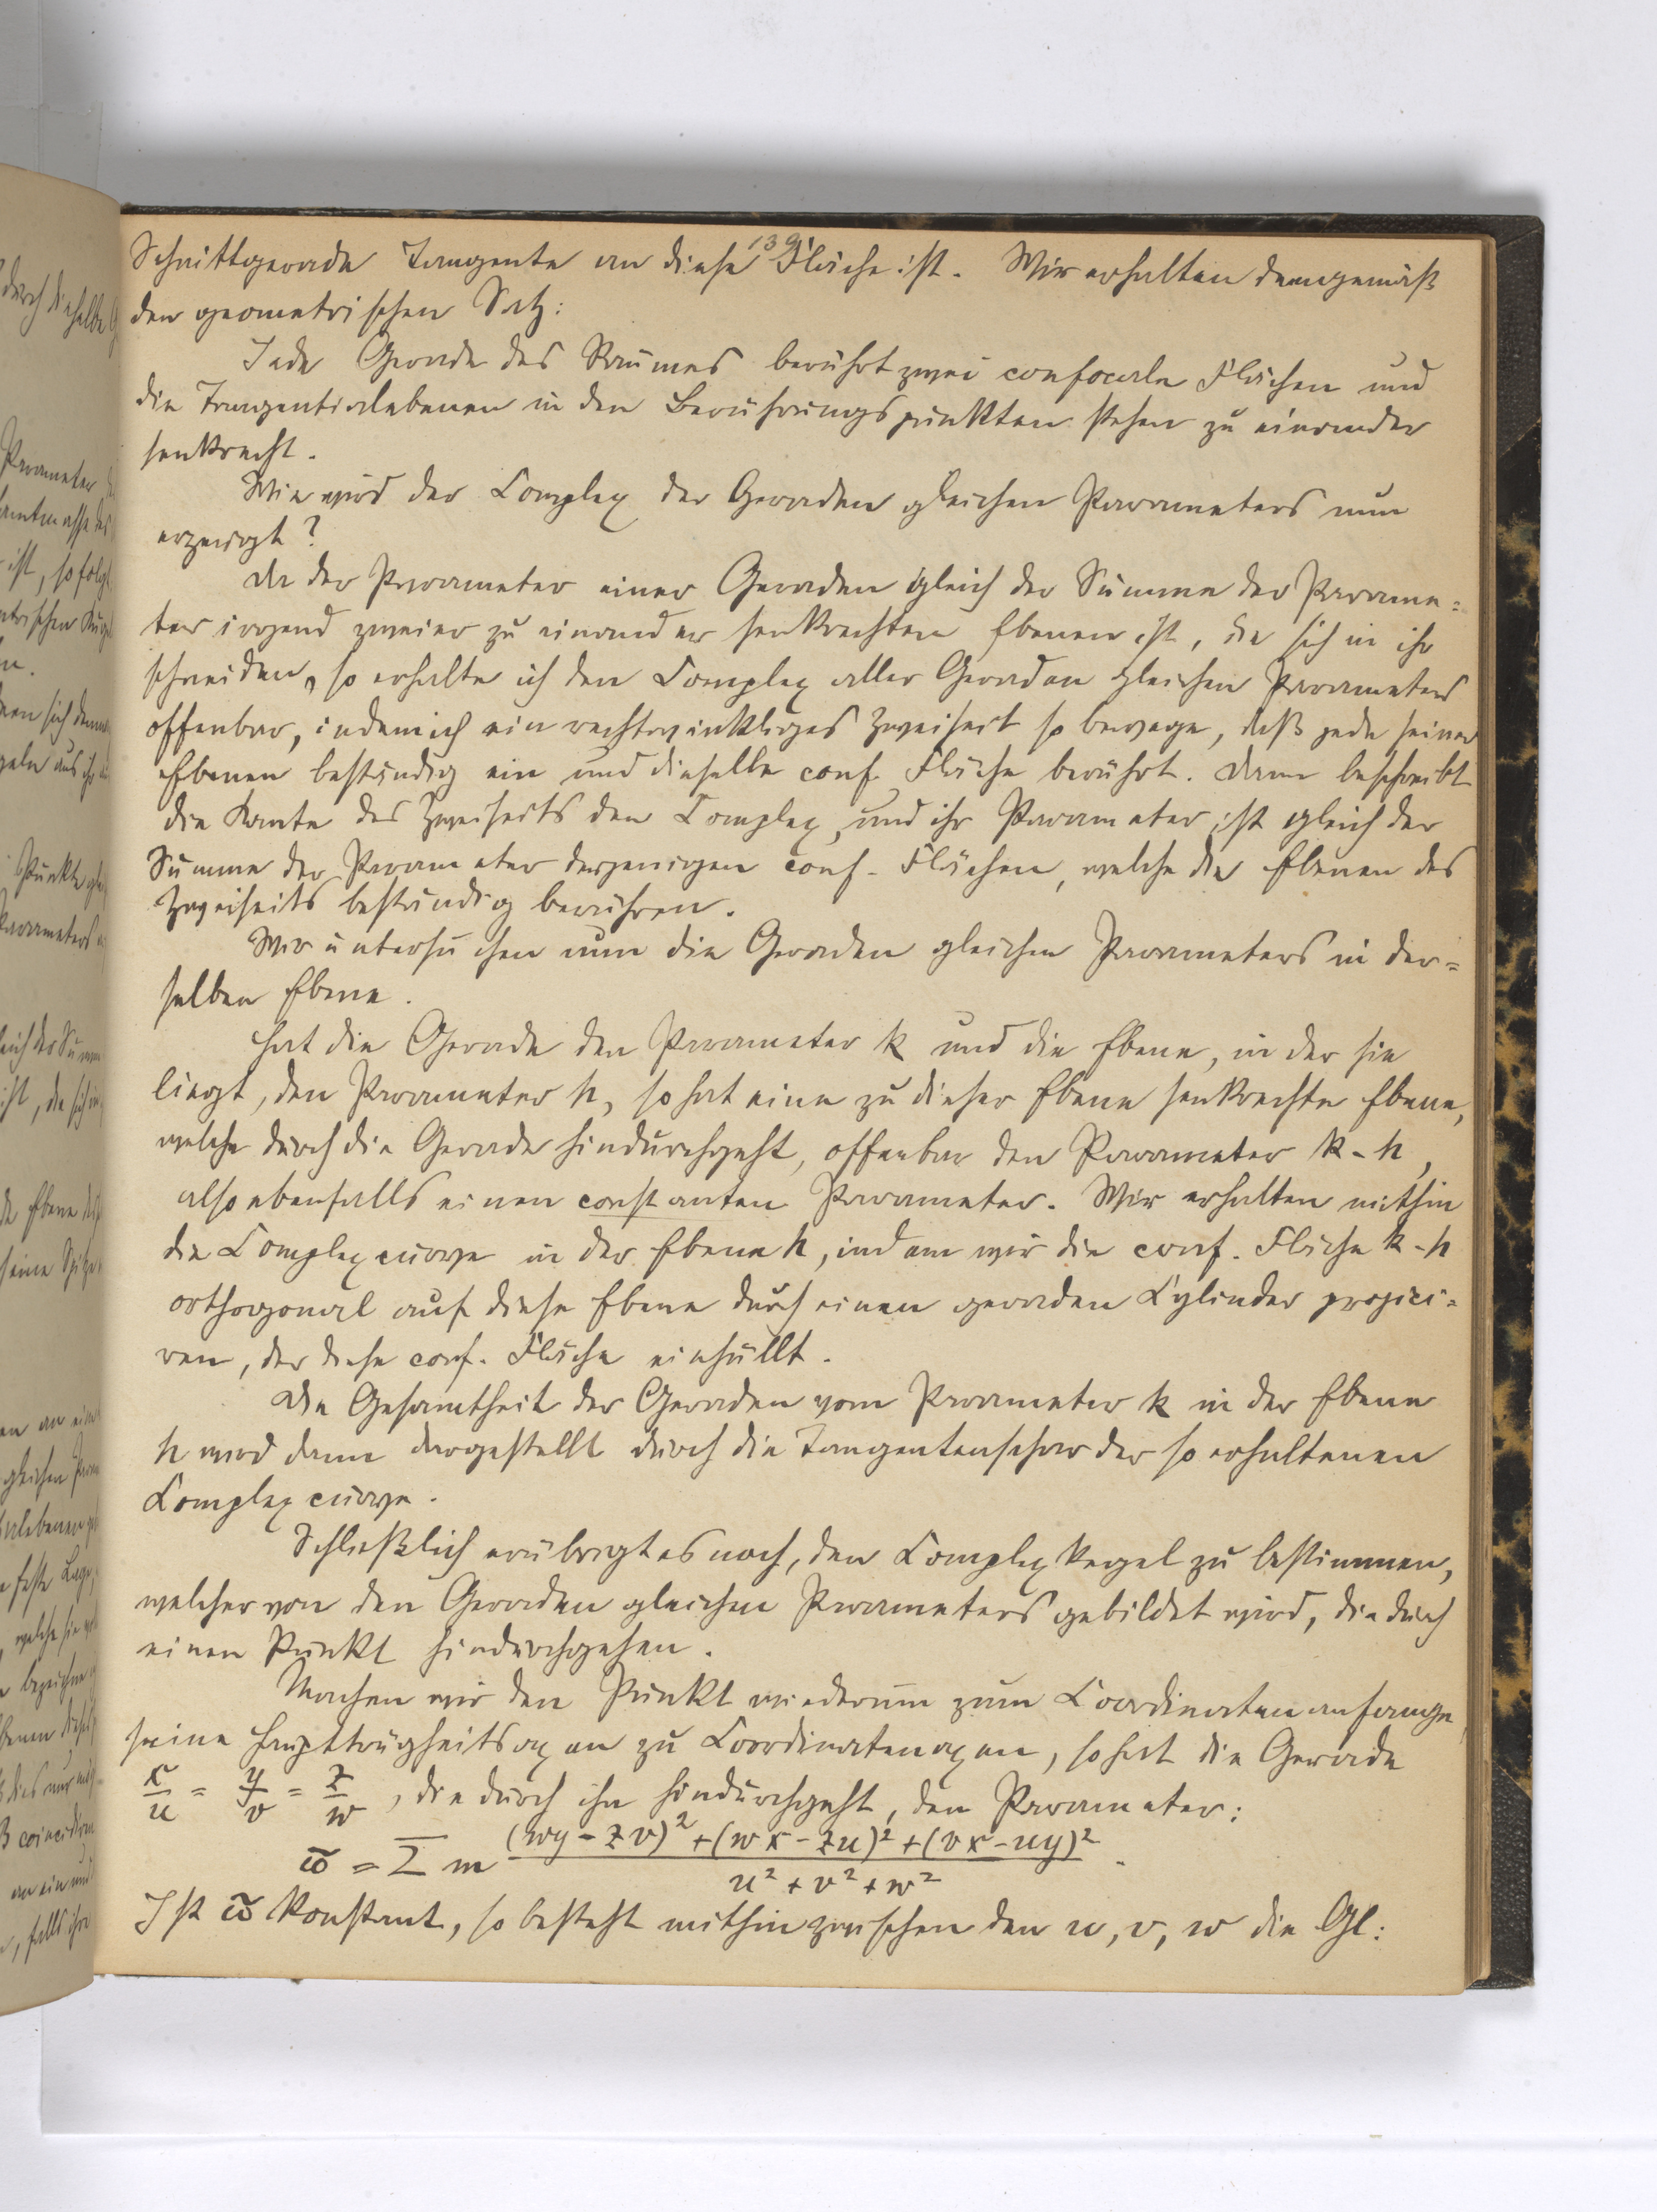 139
Schnittgerade Tangente an diese Fläche ist. Wir erhalten demgemäß
den geometrischen Satz:
Jede Gerade des Raumes berührt zwei confocale Flächen und
die Tangentialebenen in den Berührungspunkten stehen zu einander
senkrecht.
Wie wird der Complex der Geraden gleichen Parameters nun
erzeugt?
Da der Parameter einer Geraden gleich der Summe der Parame=
ter irgend zweier zu einander senkrechten Ebenen ist, die sich in ihr
schneiden, so erhalte ich den Complex aller Geraden gleichen Parameters
offenbar, indem ich ein rechtwinkliges Zweiseit so bewege, daß jede seiner
Ebenen beständig ein und dieselbe conf. Fläche berührt. Dann beschreibt
die Kante des Zweiseits den Complex, und ihr Parameter ist gleich der
Summe der Parameter derjenigen conf. Flächen, welche die Ebenen des
Zweiseits beständig berühren.
Wir untersuchen nun die Geraden gleichen Parameters in der=
selben Ebene.
Hat die Gerade den Parameter k und die Ebene, in der sie
liegt, den Parameter h, so hat eine zu dieser Ebene senkrechte Ebene,
welche durch die Gerade hindurchgeht, offenbar den Parameter k-h,
also ebenfalls einen constanten Parameter. Wir erhalten mithin
die Complexcurve in der Ebene h, indem wir die conf. Fläche k-h
orthogonal auf diese Ebene durch einen geraden Cylinder projici=
ren, der diese conf. Fläche einhüllt.
Die Gesamtheit der Geraden vom Parameter k in der Ebene
h wird dann dargestellt durch die Tangentenschar der so erhaltenen
Complexcurve.
Schließlich erübrigt es noch, den Complexkegel zu bestimmen,
welcher von den Geraden gleichen Parameters gebildet wird, die durch
einen Punkt hindurchgehen.
Machen wir den Punkt wiederum zum Coordinatenanfange,
seine Hauptträgheitsaxen zu Coordinatenaxen, so hat die Gerade
x/u = y/v = z/w, die durch ihn hindurchgeht, den Parameter:
ω̄ = Σ m ((wy - zv)² + (wx - zu)² + (vx - uy)²)/(u² + v² + w²).
Ist ω̄ konstant, so besteht mithin zwischen den u, v, w die Gl: